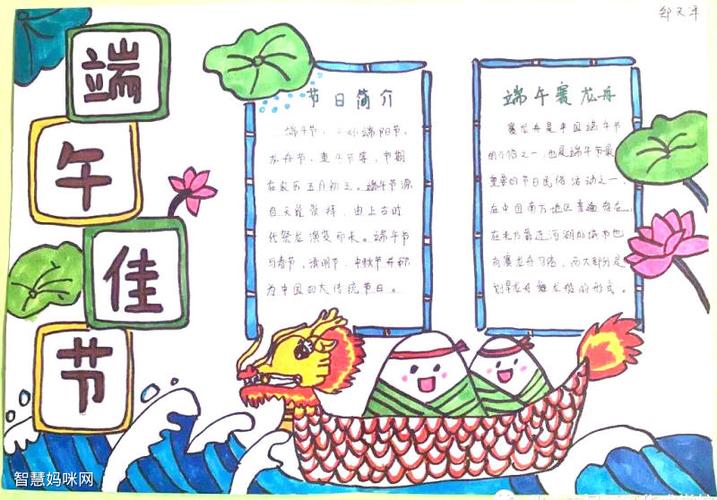 端
午
佳
节
节日简介
端午节,小端阳节,
龙舟节,重午节等,节期
在农历五月初五。端午节源
自天象崇拜,由上古时
代祭龙演变而来。端午节
与春节,清明节,中秋节并称
为中国四大传统节日。
端午赛龙舟
赛龙舟是中国端午节
的习俗之一,也是端午节最
重要的节日民俗活动之一,
在中国南方地区普遍存在,
在北方靠近河湖的城市也
有赛龙舟习俗,而大部分是
划旱龙舟舞龙船的形式。
智慧妈咪网